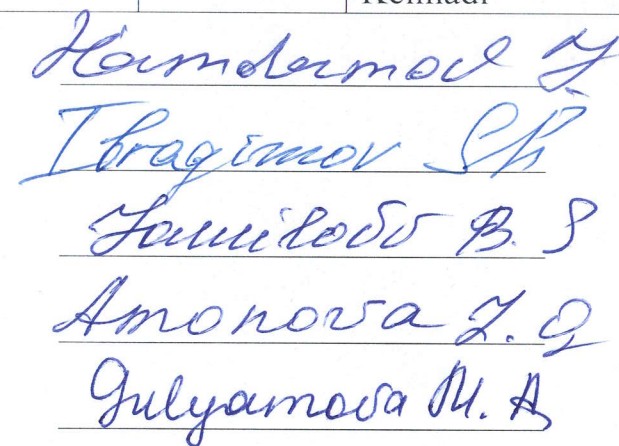 Kelmadi
Hamdamov J
Ibragimov Sh
Jamilova B. S
Amonova Z. Q
Gulyamova M. A